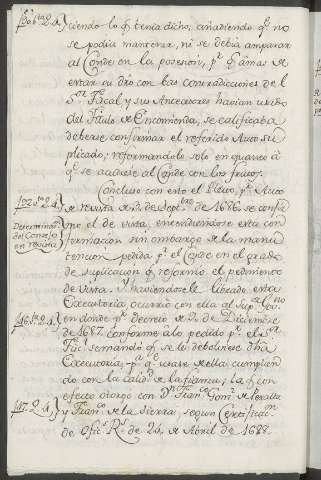 ciendo lo q̃ tenia dicho, añadiendo q.e no
se podia mantener, ni se debia amparar
al Conde en la posesion, p.r q.e amas de
estar su dro con las contradicciones del
S.or Fiscal, y sus Ancecesores havian
del Titulo de Encomienda, se calificaba
deberse confirmar el referido Auto su
plicado; reformandole solo en quanto a
q.e se acudiese al Conde con los frutos.
Concluso con esto el Pleito, p.r Auto
de revista de 2 de Sept.bre de 1686 se confir
mo el de vista, entendiendose esta con
firmacion sin embargo de la manu
tencion pedida p.r el Conde en el grado
de suplicacion q̃ reformó el pedimento
de vista. Y haviendosele librado esta
Executoria ocurrió con ella al Sup.or Gov.no
en donde p.r decreto de 2 de Diciembre
de 1687 conforme a lo pedido p.r el S.or
Fis.l se mandó q̃ se le debolviese dha
Executoria, p.a q.e usase de ella cumplien
do con la calid.d de la fianza; la q̃ con
efecto otorgó con D.n Fran.co Gom.z de Peralta
y Fran.co de la Sierra, segun Certificac.n
de Ofic.s R.s de 24 de Abril de 1688.
Determinac.n
del Consejo
en revista